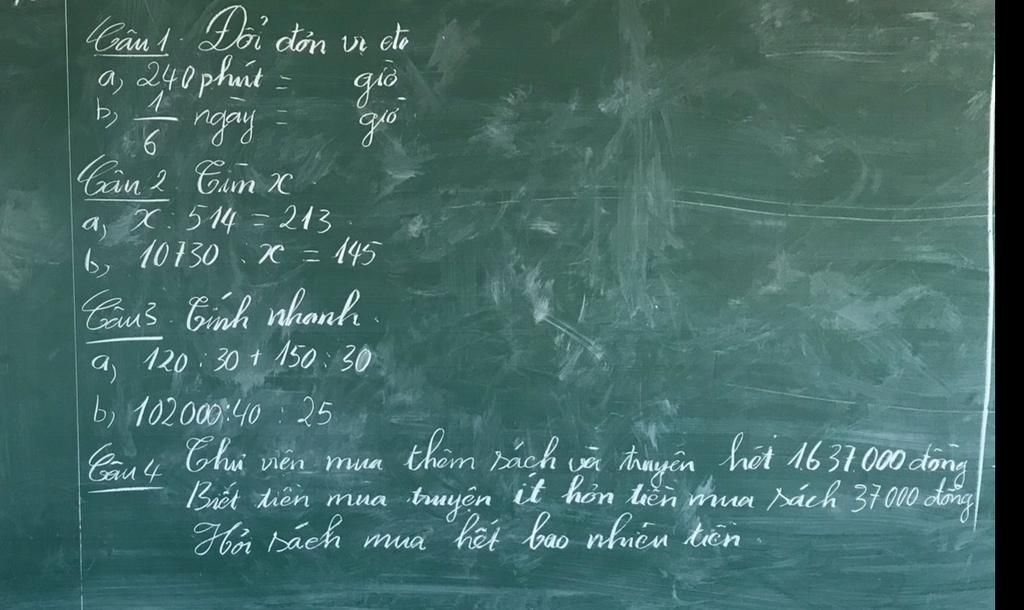 Câu 1. Đổi đơn vị đo
a, 240 phút = giờ
b, 1/6 ngày = giờ
Câu 2. Tìm x
a, x : 514 = 213
b, 10730 : x = 145
Câu 3. Tính nhanh.
a, 120 : 30 + 150 : 30
b, 102000 : 40 : 25
Câu 4 Thư viện mua thêm sách và truyện hết 1637000 đồng
Biết tiền mua truyện ít hơn tiền mua sách 37000 đồng
Hỏi sách mua hết bao nhiêu tiền.